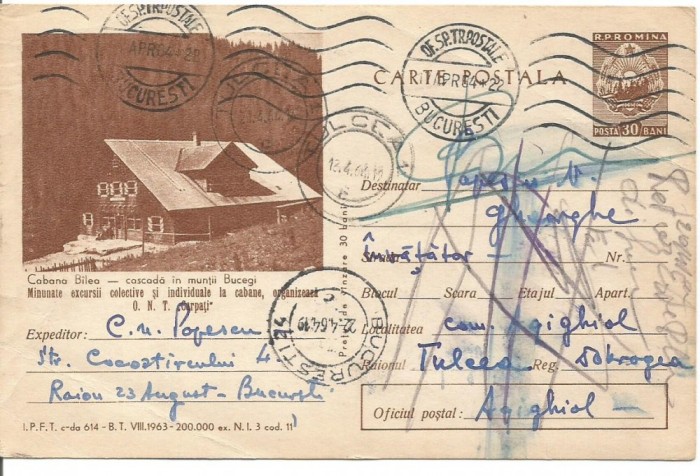 OF. SP. TR. POSTALE
APR 64 * 22
BUCURESTI
OF. SP. TR. POSTALE
APR 64 * 22
BUCURESTI
R.P. ROMINA
CARTE POSTALA
POSTA 30 BANI
TULCEA
13.4.64.12
Destinatar Popescu N.
Gheorghe
Învățător -
Nr.
Blocul Scara Etajul Apart.
Cabana Bîlea — cascadă în munții Bucegi
Minunate excursii colective și individuale la cabane, organizează
O. N. T. "Carpați"
Prețul de vînzare 30 bani
BUCURESTI 24
22.4.64.19
Expeditor: C. N. Popescu
Str. Cocoстîrcului 4
Raion 23 August - București
Localitatea com. Agighiol
Raionul Tulcea Reg. Dobrogea
Oficiul poștal: Agighiol -
I.P.F.T. c-da 614 - B.T. VIII.1963 - 200.000 ex. N.I. 3 cod. 11